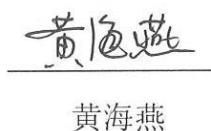 黄海燕
黄海燕